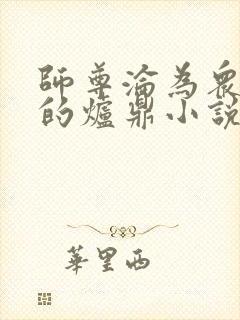 師尊淪為衆
的爐鼎小說
華里西